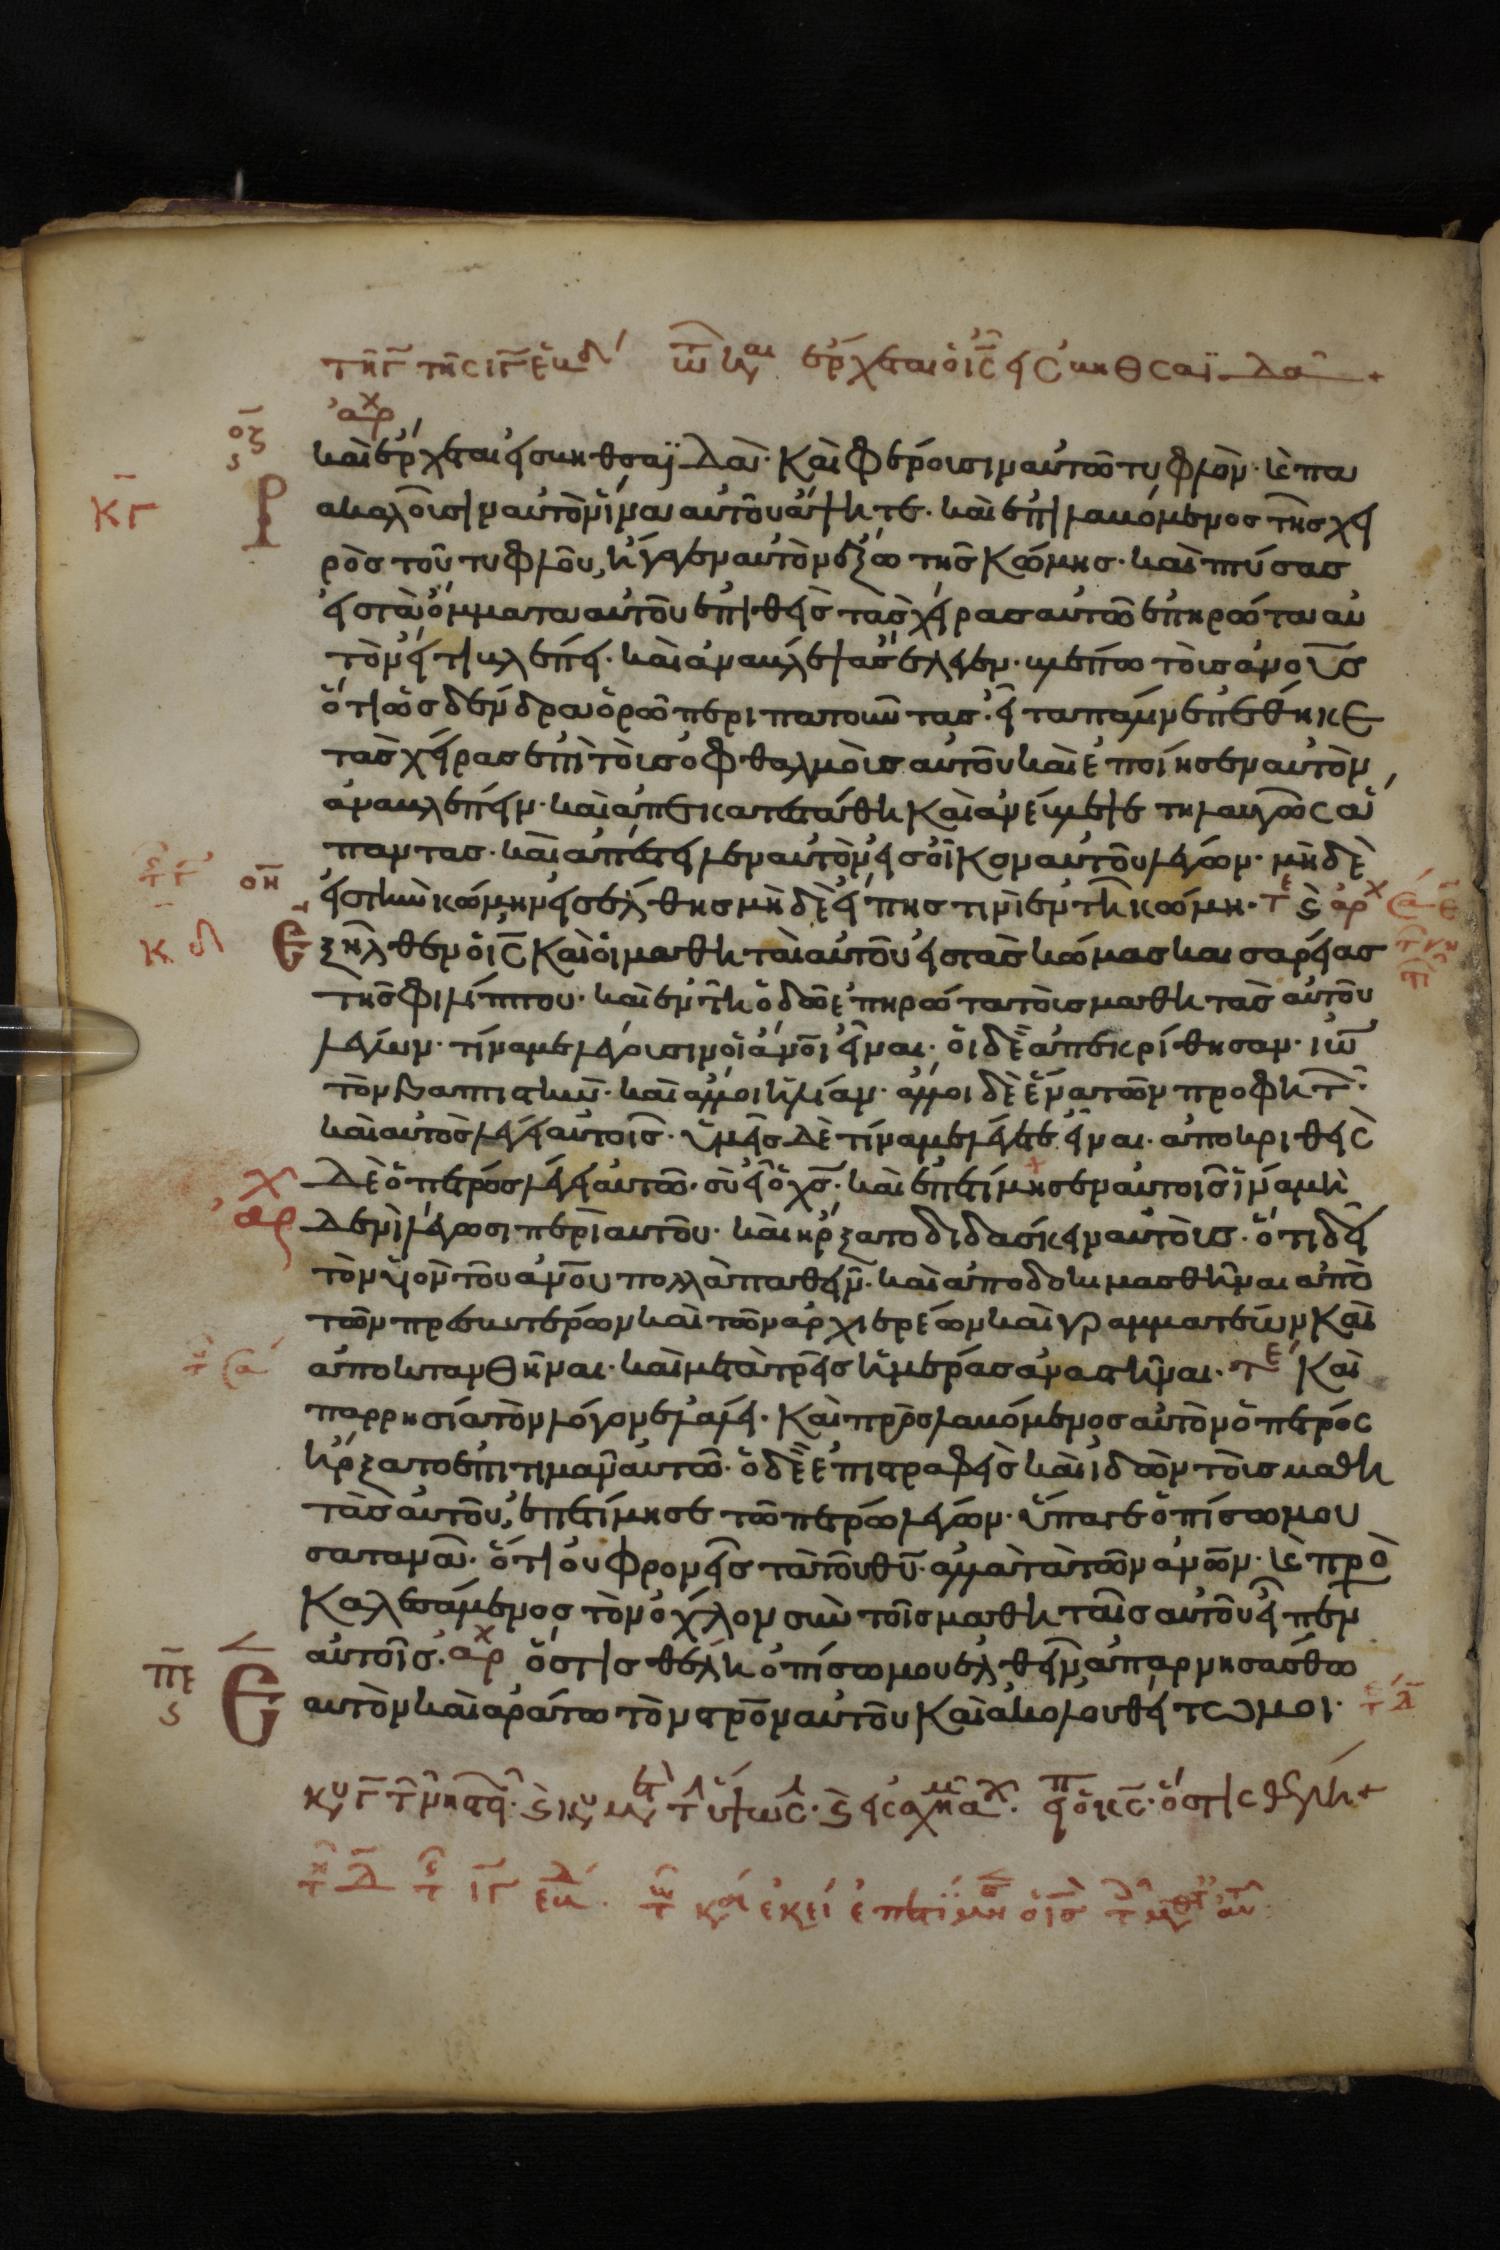 τῆ γ̅ τῆς ιγ̅ ἑβδ τῶ κ αι ἔρχεται ὁ ις̅ εἰς βηθσαϊδὰ +
ἀρχ
οζ
ς
καὶ ἔρχεται εἰς βηθσαϊδὰ· καὶ φέρουσιν αὐτῶ τυφλὸν· κὲ πα
κγ
ρακαλοῦσιν αὐτὸν ἵνα αὐτοῦ ἅψητε· καὶ ἐπιλαβόμενος τῆς χει
ρὸς τοῦ τυφλοῦ, ἤγαγεν αὐτὸν ἔξω τῆς κώμης· καὶ πτύσας
εἰς τὰ ὄμματα αὐτοῦ ἐπιθεὶς τὰς χείρας αὐτῶ ἐπηρώτα αὐ
τὸν εἴ τι βλέπει· καὶ ἀναβλέψας ἔλεγεν· βλέπω τοὺς ἀνους
ὅτι ὡς δένδρα ὁρῶ περιπατοῦντας· εἶτα πάλιν ἐπέθηκε
τὰς χείρας ἐπὶ τοὺς ὀφθαλμοὺς αὐτοῦ καὶ ἐποίησεν αὐτὸν
ἀναβλέπειν· καὶ ἀπεκατεστάθη καὶ ἀνέβλεψε τηλαυγῶς ἅ
παντας· καὶ ἀπέστειλεν αὐτὸν εἰς οἶκον αὐτοῦ λέγων· μὴ δὲ
ον
εἰς τὴν κώμην εἰσέλθης μὴ δὲ εἴπης τινὶ ἐν τῆ κώμη· τε ἀρχ
κδ
Ἐξῆλθεν ὁ ις̅ καὶ οἱ μαθηταὶ αὐτοῦ εἰς τὰς κώμας καισαρείας
τῆς φιλίππου· καὶ ἐν τῆ ὁδῶ ἐπηρώτα τοὺς μαθητὰς αὐτοῦ
λέγων· τίνα με λέγουσιν οἱ ἄνοι εἶναι· οἱ δὲ ἀπεκρίθησαν· ιω
τὸν βαπτιστὴν· καὶ ἄλλοι ἠλίαν· ἄλλοι δὲ ἕνα τῶν προφητ
καὶ αὐτὸς λέγει αὐτοῖς· ὑμεῖς δὲ τίνα με λέγετε εἶναι· ἀποκριθεὶς
δὲ ὁ πέτρος λέγει αὐτῶ· σὺ εἶ ὁ χς̅· καὶ ἐπετίμησεν αὐτοῖς ἵνα μη
ἀρχ
δενὶ λέγωσι περὶ αὐτοῦ· καὶ ἤρξατο διδάσκειν αὐτοὺς· ὅτι δεῖ
τὸν υἱὸν τοῦ ἀνου πολλὰ παθεῖν· καὶ ἀποδοκιμασθῆναι ἀπὸ
τῶν πρεσβυτέρων καὶ τῶν ἀρχιερέων καὶ γραμματέων καὶ
ἀποκτανθῆναι· καὶ μετὰ τρεῖς ἡμέρας ἀναστῆναι· τε καὶ
παρρησία τὸν λόγον ἐλάλει· καὶ προσλαβόμενος αὐτὸν ὁ πέτρος
ἤρξατο ἐπιτιμᾶν αὐτῶ· ὁ δὲ ἐπιστραφεὶς καὶ ἰδὼν τοὺς μαθη
τὰς αὐτοῦ, ἐπετίμησε τῶ πέτρω λέγων· ὕπαγε ὀπίσω μου
σατανᾶ· ὅτι οὐ φρονεῖς τὰ τοῦ θυ̅· ἀλλὰ τὰ τῶν ἀνων· κὲ προ
καλεσάμενος τὸν ὄχλον σὺν τοῖς μαθηταῖς αὐτοῦ εἶπεν
αὐτοῖς· ἀρχ ὅστις θέλη ὀπίσω μου ἐλθεῖν ἀπαρνησάσθω
πε
ς
ἑαυτὸν καὶ ἀράτω τὸν στρον αὐτοῦ καὶ ἀκολουθείτω μοι·
εἶπεν ὁ κς̅· ὅστις θέλη +